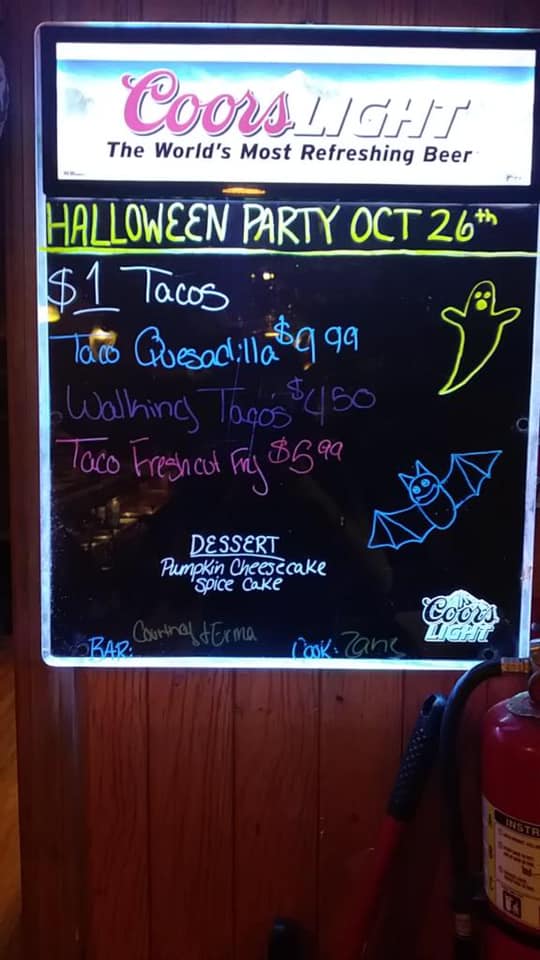 Coors LIGHT
The World's Most Refreshing Beer
HALLOWEEN PARTY OCT 26th
$1 Tacos
Taco Quesadilla $9.99
Walking Tacos $4.50
Taco Fresh cut Fry $6.99
DESSERT
Pumpkin Cheesecake
Spice Cake
Coors
LIGHT
BAR: Courtney & Erma Cook: Zane
INSTR